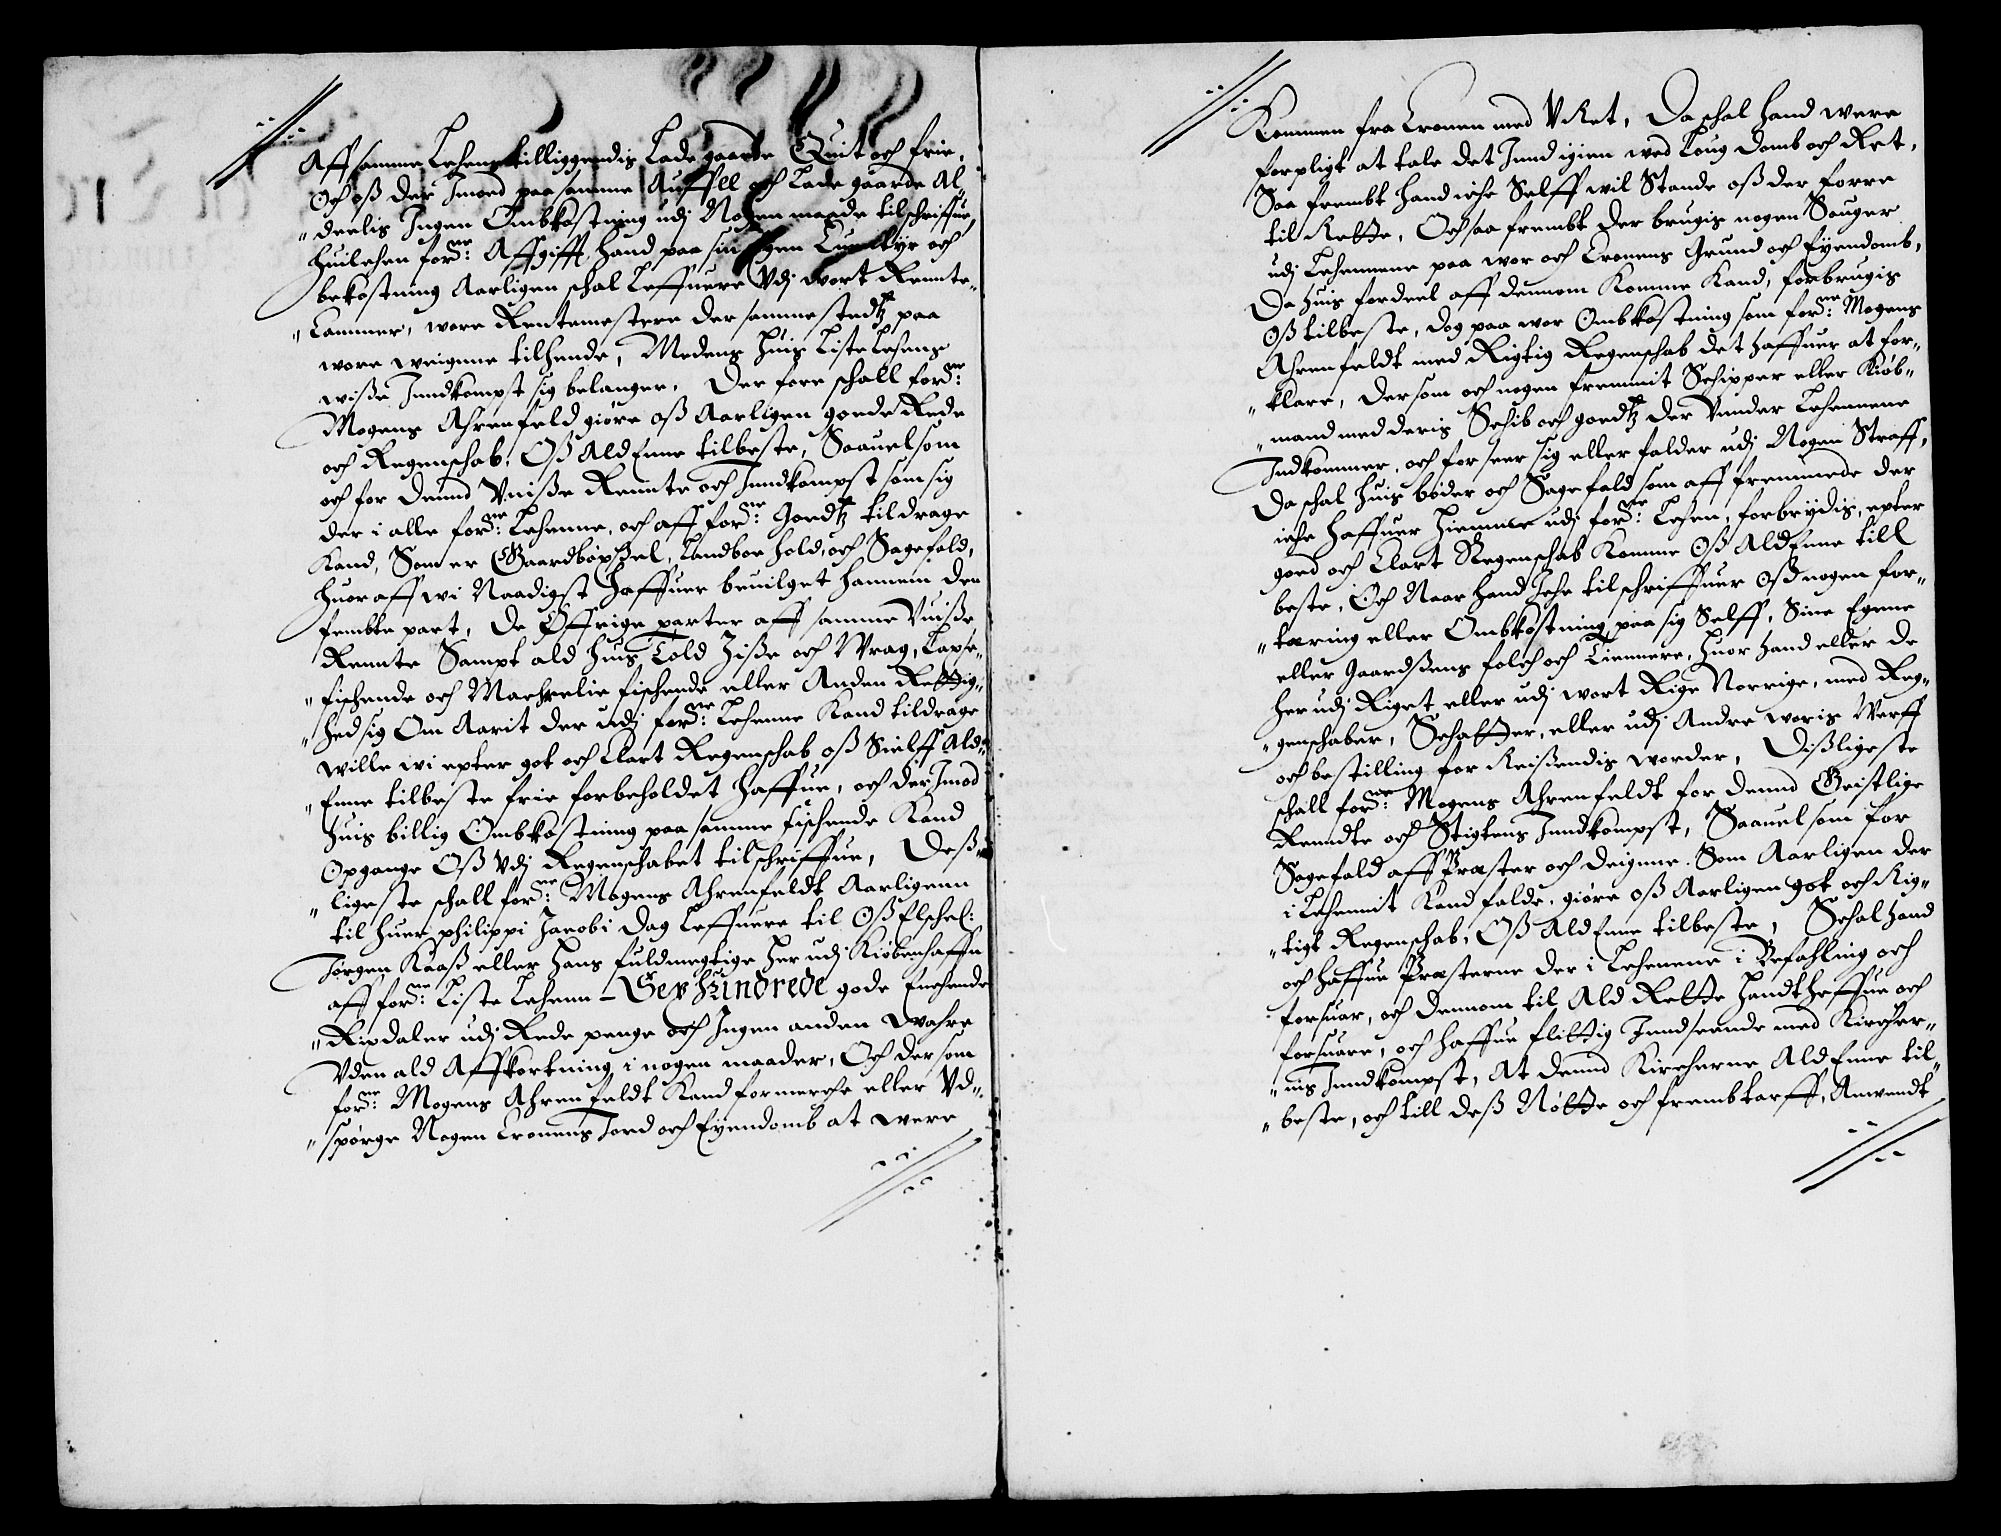 Aff samme Lehens tilliggendis Lade gaarde Quit och frie,
Och oß der Imod paa samme Auffll och Lade gaarde Al„
„deelis Ingen Ombkostning udj Nogen maade tilschriffue,
Huilchen fordne: Affgifft hand paa sin Egen Euentyr och
bekostning Aarligen schal Leffuere Vdj vort Rennte„
„Cammer, wore Rentemestere der sammestedtz paa
wore weignne tilhende, Medens huis Liste Lehens
wiße Inndkompst sig belanger, Der fore schall fordne:
Mogens Ahrenfeld giøre oß Aarligen goede Rede
och Regenschab, Oß Ald Enne tilbeste, Saauelsom
och for dennd Vuiße Rennte och Inndkompst som sig
der i alle fordne: Lehenne, och aff fordne: Goedtz tildrage
Kand, Som er Gaardbøxßel, Landboe hold, och Sagefald,
huoraff wi Naadigst haffuer beuilget hannem den
fembte part, De Øffrige parter aff samme Vuiße
Rennte Sampt ald huis Told Ziße och Wrag, Laxse„
„fischende och Machrelie fischende eller Anden Rettig„
„hed sig Om Aarit der udj fordne: Lehenne Kand tildrage
wille wi epter got och Clart Regenschab oß Sielff Ald„
„Enne tilbeste frie forbeholdet haffue, och der Imod
huis billig Ombkostning paa samme fischende Kand
Opgange Oß Vdj Regenschabet tilschriffue, Deß„
„ligeste schall fordne: Mogens Ahrenfeldt Aarligenn
til huer philippi Jacobi dag Leffuere til Oß Elschel:
Jørgen Kaaß eller hans fuldmegtige her udj Kiøbenhaffn
aff fordne: Liste Lehenn – Sex Hundrede gode Enchende
„Rixdaler udj Rede penge och Ingen anden wahre
Vden ald Affkortning i nogen maader, Och der som
fordne: Mogens Ahrenfeldt Kand formerche eller Vd„
„spørge Nogen Cronens Jord och Eyendomb at were
Kommen fra Cronen med VRet, Da schal hand were
forpligt at tale det Innd igien wed Loug domb och Ret,
Saa frembt hand iche Selff wil Stande oß der forre
til Rette, Och saa frembt der brugis nogen Sauger
udj Lehennene paa wor och Cronens Grund och Eyendomb,
Da huis fordeel aff dennom Komme Kand, forbrugis
Oß tilbeste, dog paa wor Ombkostning som fordne: Mogens
Ahrenfeldt med Rigtig Regenschab det haffuer at for„
„klare, Dersom och nogen fremmit Schipper eller Kiøb„
„mand med deris Schib och goedtz der Vnder Lehennene
Indkommer, och forseer sig eller falder udj Nogen Straff,
Da schal huis bøder och Sagefald som aff fremmede der
iche haffuer hiemme udj fordne: Lehen, forbrydis, epter
goed och Clart Regenschab Komme Oß Ald Enne till
beste, Och Naar hand Iche tilschriffuer Oß nogen for„
„tæring eller Ombkostning paa sig Selff, Sine Egene
eller Gaardßens folch och Tiennere, huor hand eller de
her udj Riget eller udj wort Rige Norrige, med Reg„
„genschaber, Schatter, eller udj Andre woris Werff
och bestilling for Reißendis worder, Dißligeste
schall fordne: Mogens Ahrenfeldt for dennd Geistlige
Renndte och Stigtens Inndkompst, Saauelsom for
Sagefald aff Præster och deignne. Som Aarligen der
i Lehennit Kand falde, giøre oß Aarligen got och Rig„
„tigt Regenschab, Oß Ald Enne tilbeste, Schal hand
och haffue Præsterne der i Lehenene i Befahling och
forsuar, och dennom til Ald Rette handthæffue och
forsuare, och haffue flittig Inndseende med Kircher„
„nis Inndkompst, At dennd Kircherne Ald Enne til„
„beste, och till deß Nøtte och frembtarff, Anwendt